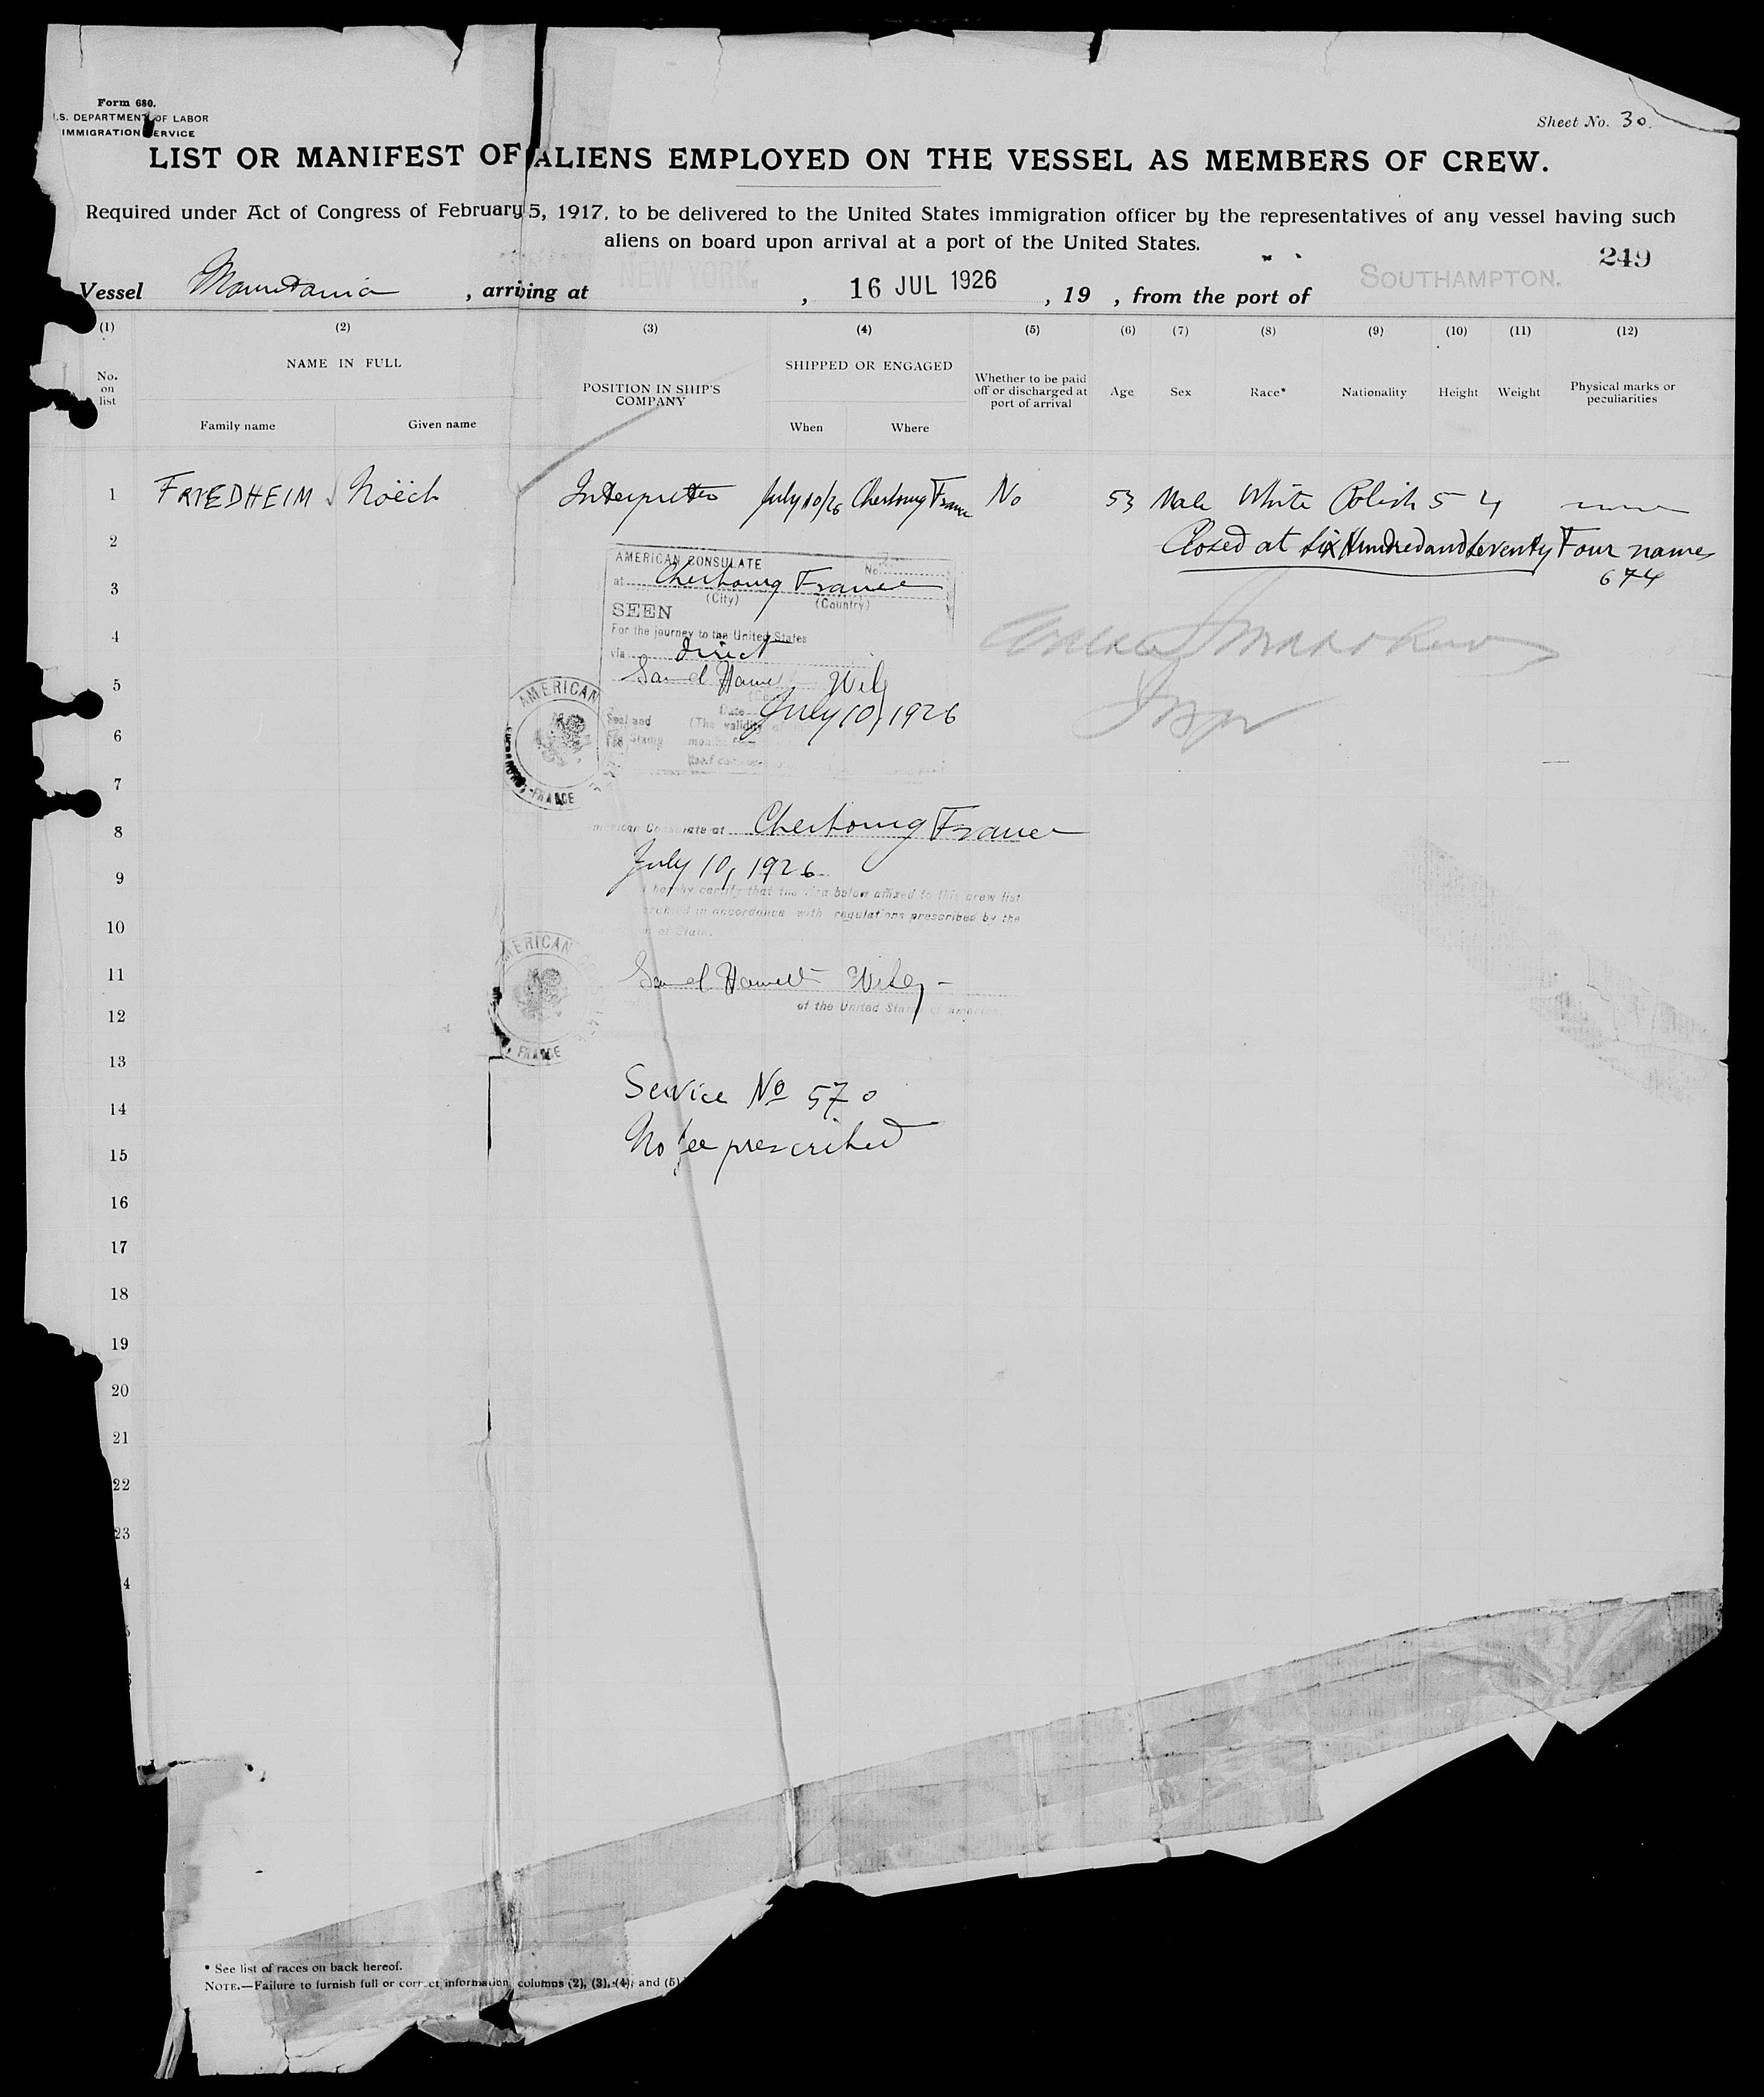 Form 680.
U.S. DEPARTMENT OF LABOR
IMMIGRATION SERVICE
Sheet No. 30.
LIST OR MANIFEST OF ALIENS EMPLOYED ON THE VESSEL AS MEMBERS OF CREW.
Required under Act of Congress of February 5, 1917, to be delivered to the United States immigration officer by the representatives of any vessel having such
aliens on board upon arrival at a port of the United States.
249
Vessel Mauretania, arriving at NEW YORK., 16 JUL 1926, 19 , from the port of SOUTHAMPTON.
(1) (2) (3) (4) (5) (6) (7) (8) (9) (10) (11) (12)
No. on list
NAME IN FULL
Family name Given name
POSITION IN SHIP'S COMPANY
SHIPPED OR ENGAGED
When Where
Whether to be paid off or discharged at port of arrival
Age Sex Race* Nationality Height Weight
Physical marks or peculiarities
1 FRIEDHEIM Noëch Interpreter July 10/26 Cherbourg France No 53 Male White Polish 5 4
2 Closed at Six Hundred and Seventy Four names
674
AMERICAN CONSULATE
No.
at Cherbourg France
(City) (Country)
3
SEEN
For the journey to the United States
4
via direct
5
Date July 10, 1926
Seal and
Fee Stamp
(The validity
6
AMERICAN
FRANCE
7
8 American Consulate at Cherbourg France
July 10, 1926
9
I hereby certify that the visa below affixed to this crew list
in accordance with regulations prescribed by the
10
of State.
AMERICAN
11
of the United States of America.
12
FRANCE
13
Service No 570
14
No fee prescribed
15
16
17
18
19
20
21
22
23
4
* See list of races on back hereof.
NOTE.—Failure to furnish full or correct information columns (2), (3), (4), and (5)